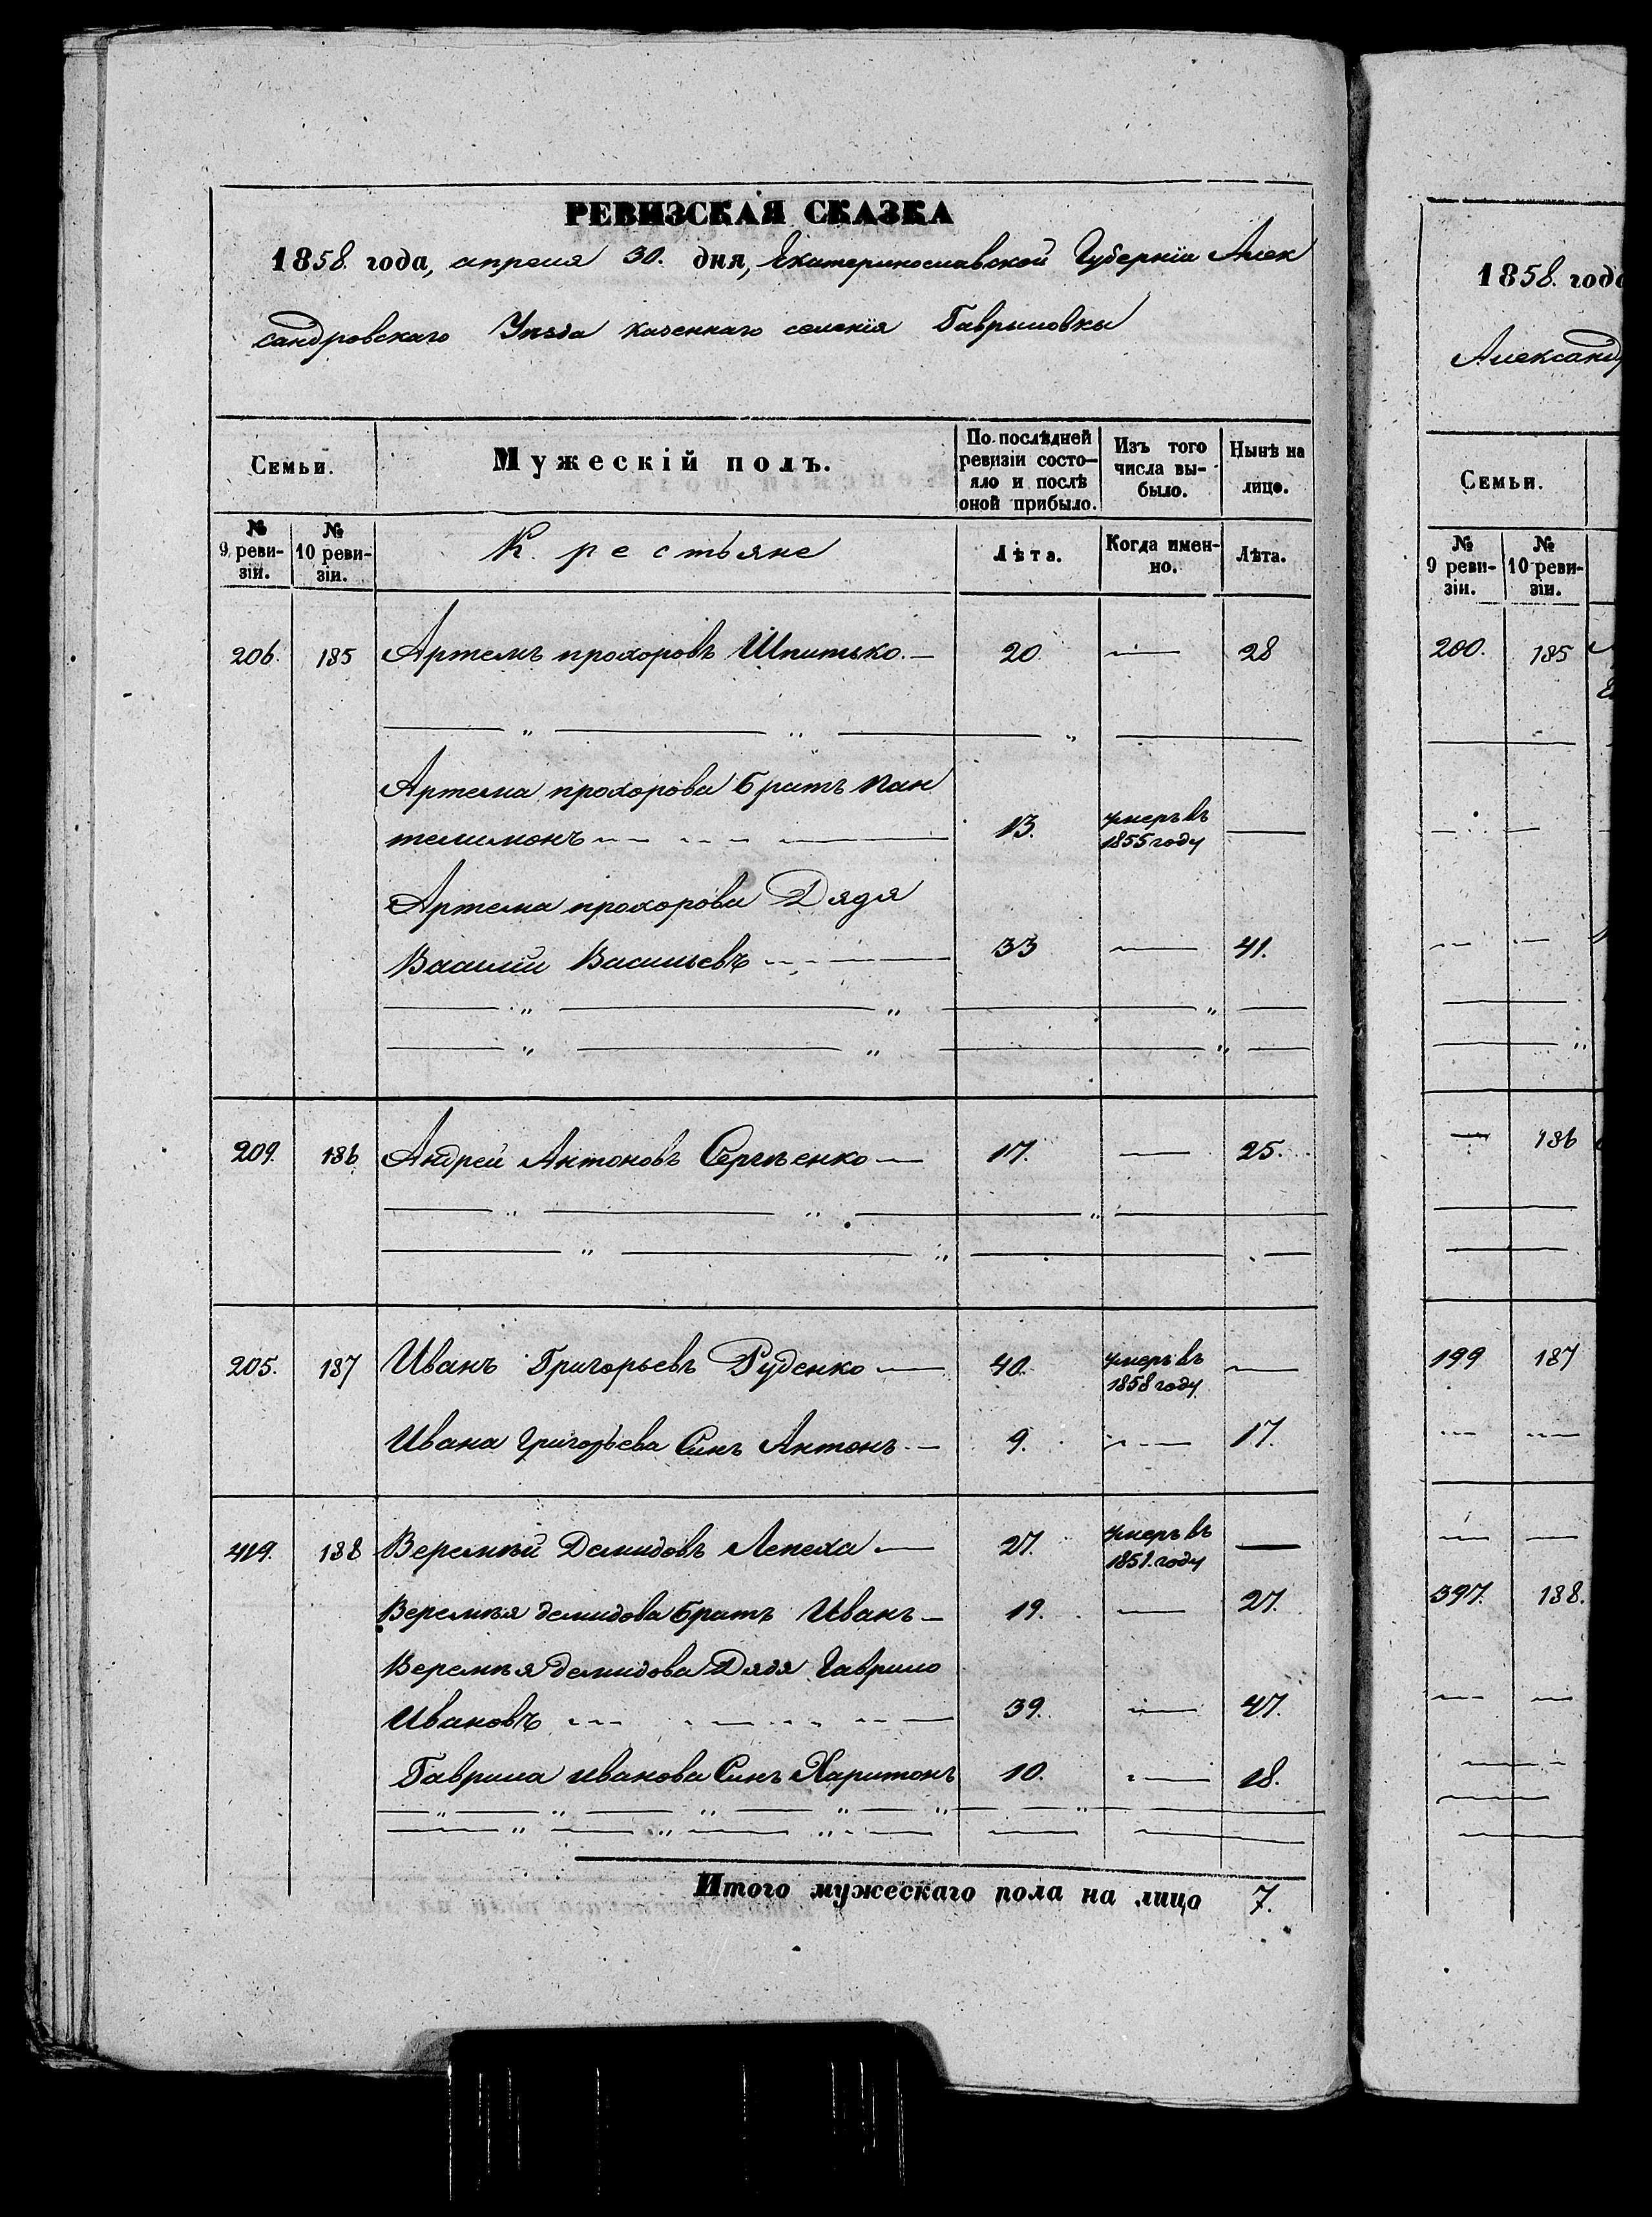 РЕВИЗСКАЯ СКАЗКА
1858. года, апреля 30. дня, Екатеринославской Губерніи Алек
сандровскаго Уѣзда казеннаго селенія Гаврыловки
Семьи.
Мужескій полъ.
По послѣдней ревизіи состо-
яло и послѣ оной прибыло.
Изъ того числа вы-
было.
Нынѣ на лицо.
№ 9 реви-
зіи.
№ 10 реви-
зіи.
Крестьяне
Лѣта.
Когда имен-
но.
Лѣта.
206. 185 Артемъ прохоровъ Шпитько. — 20. — 28
Артема прохорова братъ Пан
телимонъ — 13. умеръ въ 1855 году —
Артема прохорова Дядя
Василий Васильевъ — 33 — 41.
209. 186 Андрей Антоновъ Сергѣенко — 17. — 25.
205. 187 Иванъ Григорьевъ Руденко — 40. умеръ въ 1858 году —
Ивана Григорьева Синъ Антонъ — 9. — 17.
419. 188 Веремѣй Демидовъ Лепеха — 27. умеръ въ 1851. году —
Веремѣя демидова братъ Иванъ — 19. — 27.
Веремѣя демидова Дядя Гаврило
Ивановъ — 39. — 47.
Гаврила иванова Синъ Харитонъ 10. — 18.
Итого мужескаго пола на лицо 7.
1858. года
Александ
Семьи.
№ 9 реви-
зіи.
№ 10 реви-
зіи.
200. 185
— 186
199 187
397. 188.